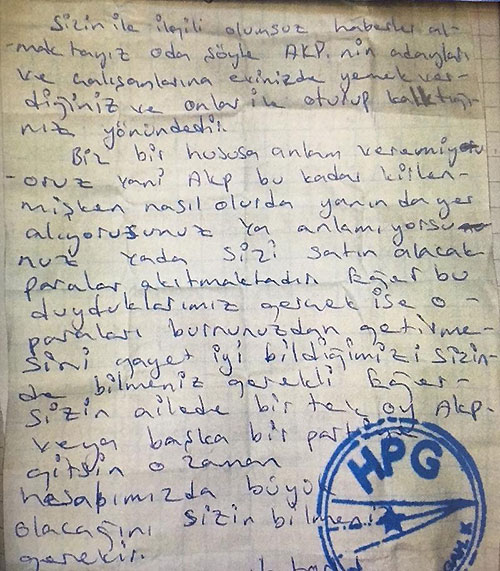 Sizin ile ilgili olumsuz haberler al-
-maktayız oda şöyle AKP.nin adayları
ve çalışanlarına evinizde yemek ver-
diğiniz ve onlar ile oturup kalktığı-
nız yönündedir.
Biz bir hususa anlam veremiy
-oruz yani Akp bu kadar kirlen-
mişken nasıl olurda yanında yer
alıyorusunuz ya anlamıyorsu
nuz yada sizi satın alacak
paralar akıtmaktadır Eğer bu
duyduklarımız gerçek ise o-
paraları burnunuzdan getirme-
sini gayet iyi bildiğimizi sizin-
de bilmeniz gerekli Eğer-
sizin ailede bir tek oy Akp-
veya başka bir
gitsin o zaman
hesabımızda büyük
olacağını sizin bilmeniz
gerekir.
HPG